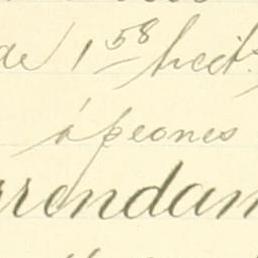 de 1 58 hect.
á peones
rrendam